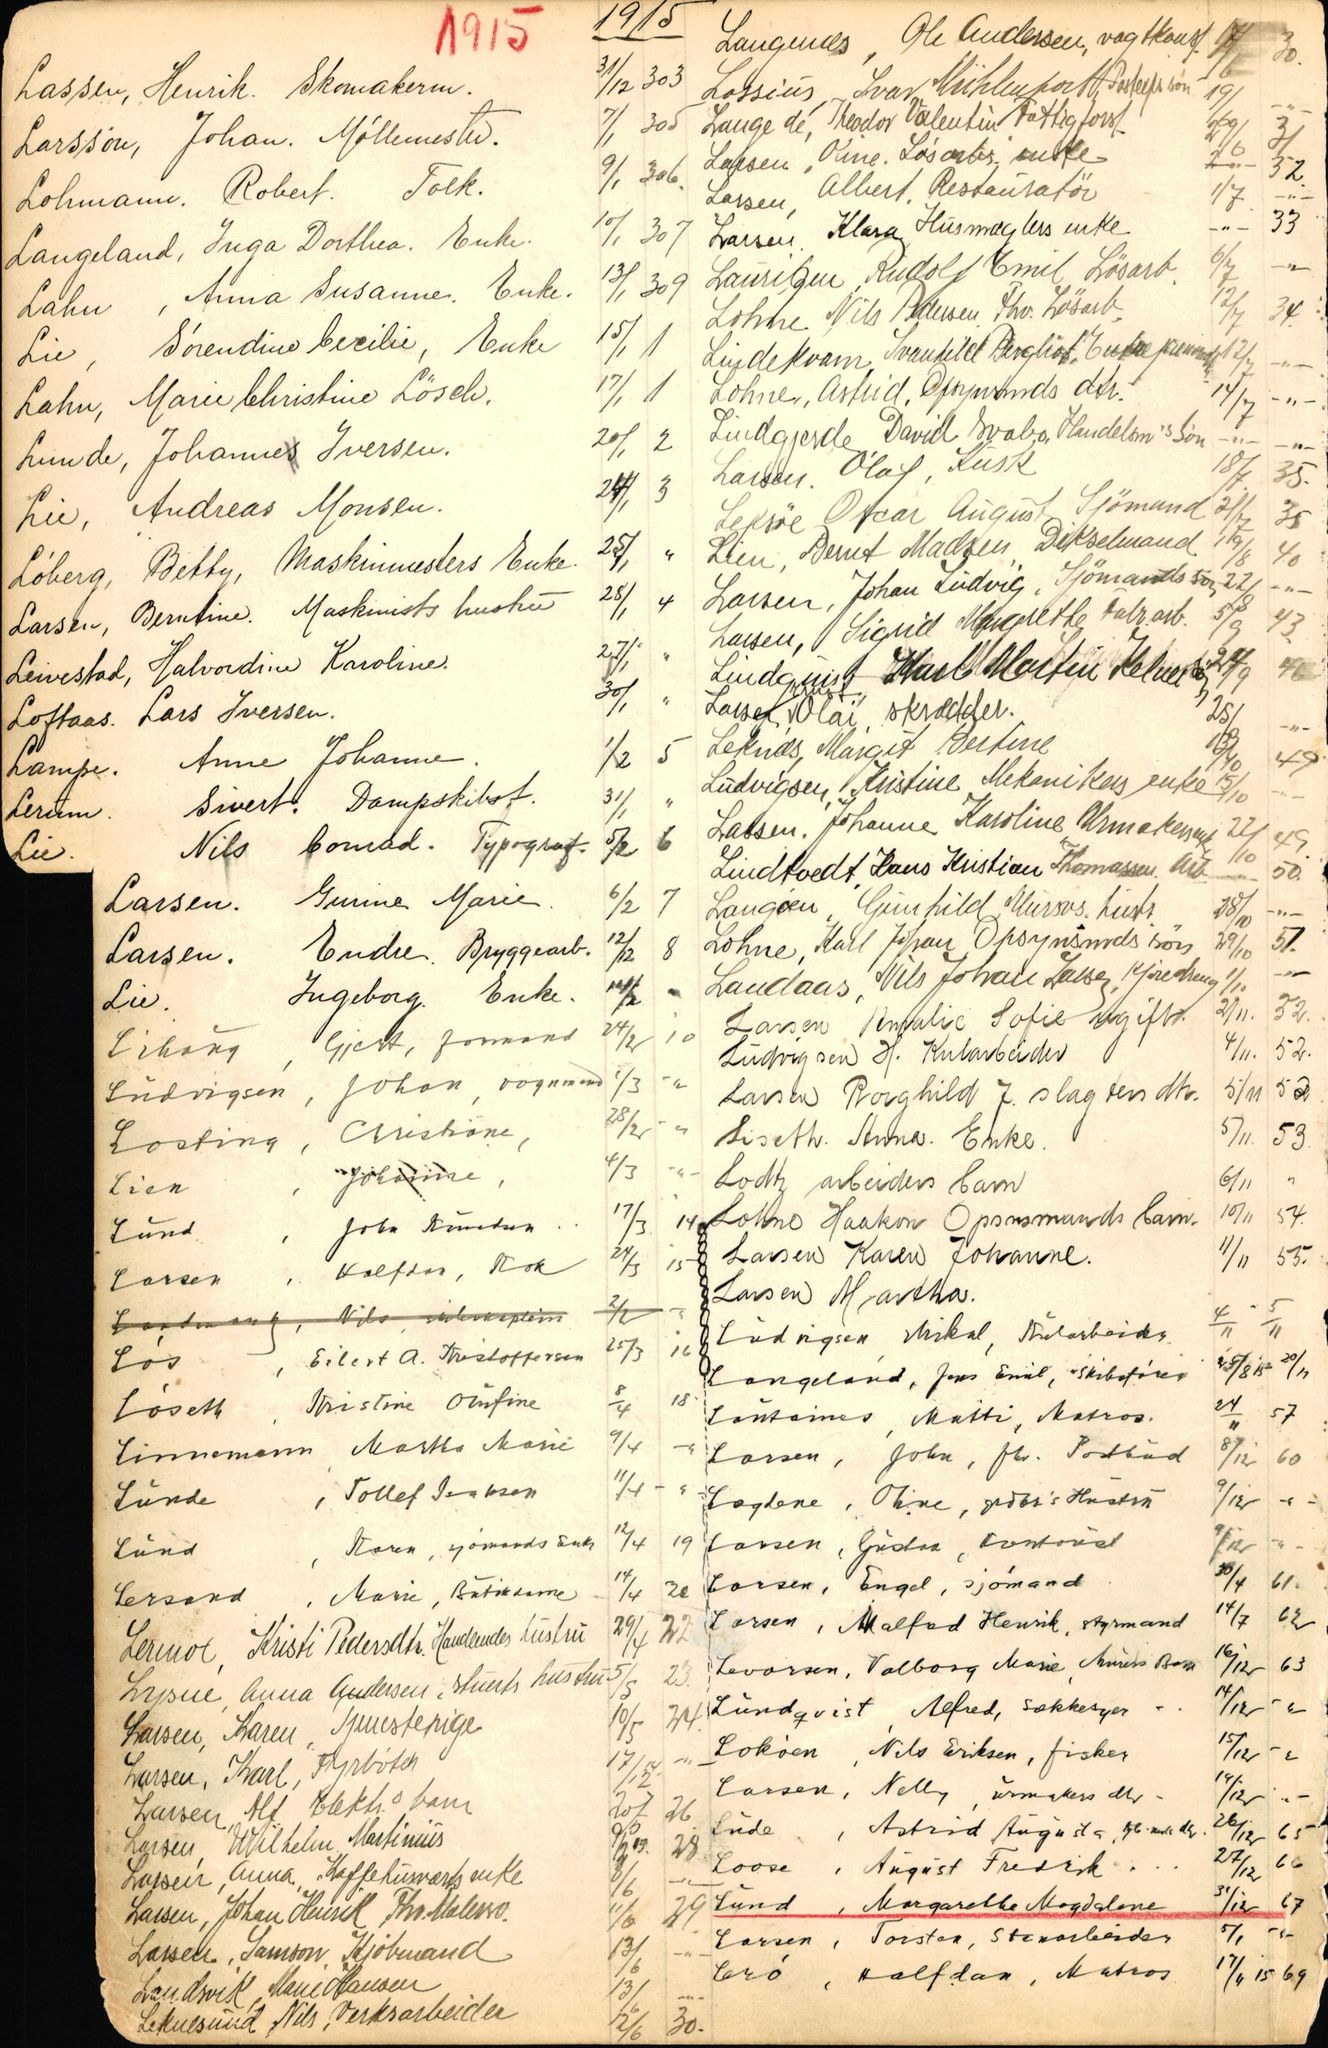 1915
1915
Lassen, Henrik. Skomakerm. 31/12 303
Larsson, Johan. Möllemestr. 7/1 305
Lohmann. Robert. Tolk. 9/1 306.
Langeland, Inga Dorthea. Enke. 10/1 307
Lahn, Anna Susanne. Enke. 13/1 309
Lie, Sörendine Cecilie, Enke 15/1 1
Lahn, Marie Christine Lösch. 17/1 1
Lunde, Johannes Iversen. 20/1 2
Lie, Andreas Monsen. 24/1 3
Löberg, Betty, Maskinmesters Enke. 25/1 "
Larsen, Berntine. Maskinists hustru 28/1 4
Leivestad, Halvordine Karoline. 27/1 "
Loftaas. Lars Iversen. 30/1 "
Lampe. Anne Johanne. 1/2 5
Lerum. Sivert. Dampskibsf. 31/1 "
Lie. Nils Conrad. Typograf. 5/2 6
Larsen. Gurine Marie. 6/2 7
Larsen. Endre. Bryggearb. 12/2 8
Lie. Ingeborg. Enke. "
Gjert, formand 24/2 10
Ludvigsen, Johan, vognmand 1/3 "
Losting, Christiane, 28/2 "
Lien, Johanne, 4/3 "
Lund, John Knudsen 17/3 14
Larsen, Halfdan, Kok 24/3 15
Nils
Lös, Eilert A. Kristoffersen 25/3 16
Löseth, Kristine Olufine 8/4 18
Linnemann Martha Marie 9/4 "
Lunde, Tollef Isaksen 11/4 "
Lund, Karen, sjömands Enke 12/4 19
Lersand, Marie, Butikdame 14/4 20
Lermoe, Kristi Pedersdtr. Handlendes hustru 29/4 22
Lysne, Anna Andersen, stuerts hustru 5/5 23.
Larsen, Karen, tjenestepige 10/5 24.
Larsen, Karl, Fyrböter
Larsen, Alf Elektr. barn 26
Larsen, Wilhelm Martinius 28
Lassen, Anna, Kaffehusværts enke 8/6
Larsen, Johan Henrik, fhv. Malersv. 11/6 29
Larsen, Samson, Kjöbmand 13/6
Landsvik, Marie Hansen 13/6
Leknesund, Nils, Verksarbeider 12/6 30.
Langenes, Ole Andersen, vagtkonst. 30.
Lossius, Ivar Mühlenport, 19/
Lange de, Theodor Valentin Fattigforst. 31
Larsen, Oline. Lösarb. enke 32
Larsen, Albert. Restauratör 1/7
Larsen. Klara, Husmæglers enke 33
Lauritzen, Rudolf Emil Lösarb. 6/7
Lohne Nils Pedersen. Fhv. Lösarb. 12/7 34.
Lindekvam, Svanhild Bergliot, 12/7
Lohne, Astrid, Opsynmds dtr. 14/7
Lindgjerde David Svaba, Handelsm's Sön
Larsen. Olaf, Kusk 18/7 35.
Leksöe Oscar August Sjömand 21/7 35
Lien, Bernt Madsen Dikselmand 40
Larsen, Johan Ludvig, Sjömands sön 22/8
Larsen, Sigrid Margrethe Fabr.arb. 5/9 43
Lindquist Karl Martin 46
Larsen, Olai, skrædder. 25/
Leknes, Margit Bertine 49
Ludvigsen, Kristine Mekanikers enke 15/10
Larsen. Johanne Karoline 22/10 49.
Lindtvedt, Hans Kristian Thomassen. Arb 50.
Langöen, Gunhild, Mursvs. hustr. 28/10
Lohne, Karl Johan Opsynsmds sön 29/10 51.
Landaas, Nils Johan Lassen,
Larsen Amalie Sofie ugift. 2/11. 52.
Ludvigsen H. Kularbeider 4/11. 52.
Larsen Borghild J. slagters dtr. 5/11 52
Liseth. Anna. Enke. 5/11. 53.
Lodtz arbeiders barn 6/11 "
Lohne Haakon Opsnsmands barn. 10/11 54.
Larsen Karen Johanne. 11/11 55.
Larsen Martha.
Ludvigsen Mikal, Kularbeider 4/11 5/11
Langeland, Jens Emil, Skibsförer 20/11
Lantaines, Matti, Matros. 24/11 57
Larsen, John, fhv. Postbud 8/12 60
Lægdene, Oline, Hustru 9/12 "
Larsen, Gustav, Kontorist 9/12 "
Larsen, Engel, sjömand 30/4 61.
Larsen, Alfred Henrik, styrmand 14/7 62
Levorsen, Valborg Marie, Murers Barn 16/12 63
Lundqvist, Alfred, Sækkesyer 14/12 "
Loköen, Nils Eriksen, fisker 15/12 "
Larsen, Nelly, urmakers dtr. 14/12 "
Lude, Astrid Augusta, 26/12 65
Loose, August Fredrik 27/12 66
Lund, Margarethe Magdalene 31/12 67
Larsen, Torsten, Stenarbeider 5/1 "
Lerö, Halfdan, Matros 17/4 15 69